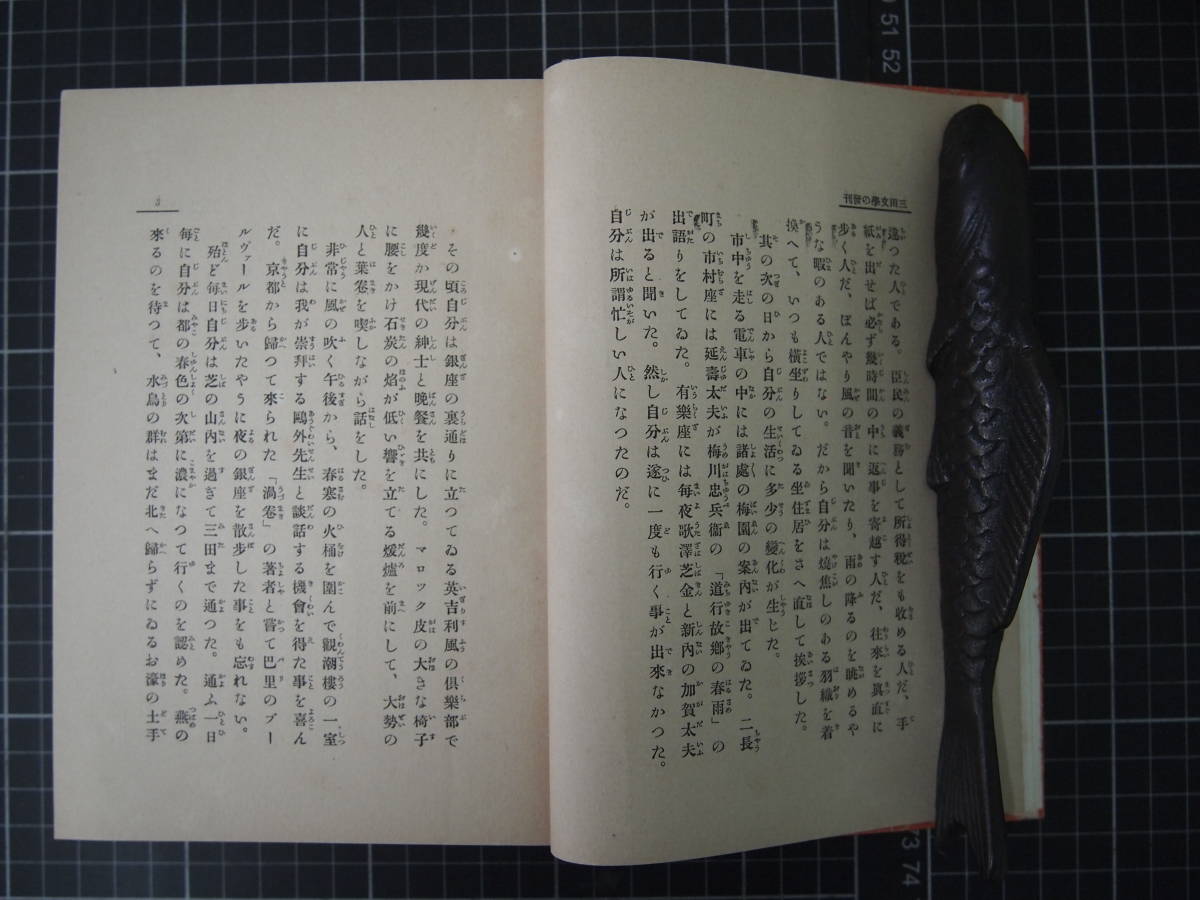 三田文學の發刊
違つた人である。臣民の義務として所得稅をも收める人だ、手
紙を出せば必ず幾時間の中に返事を寄越す人だ、往來を眞直に
步く人だ、ぼんやり風の音を聞いたり、雨の降るのを眺めるや
うな暇のある人ではない。だから自分は燒焦しのある羽織を着
換へて、いつも橫坐りしてゐる坐住居をさへ直して挨拶した。
其の次の日から自分の生活に多少の變化が生じた。
市中を走る電車の中には諸處の梅園の案內が出てゐた。二長
町の市村座には延壽太夫が梅川忠兵衞の「道行故鄕の春雨」の
出語りをしてゐた。有樂座には每夜歌澤芝金と新內の加賀太夫
が出ると聞いた。然し自分は遂に一度も行く事が出來なかつた。
自分は所謂忙しい人になつたのだ。
その頃自分は銀座の裏通りに立つてゐる英吉利風の俱樂部で
幾度か現代の紳士と晚餐を共にした。マロック皮の大きな椅子
に腰をかけ石炭の焰が低い響を立てる煖爐を前にして、大勢の
人と葉卷を喫しながら話をした。
非常に風の吹く午後から、春寒の火桶を圍んで觀潮樓の一室
に自分は我が崇拜する鷗外先生と談話する機會を得た事を喜ん
だ。京都から歸つて來られた「渦卷」の著者と嘗て巴里のブー
ルヴァールを步いたやうに夜の銀座を散步した事をも忘れない。
殆ど每日自分は芝の山內を過ぎて三田まで通つた。通ふ一日
每に自分は都の春色の次第に濃になつて行くのを認めた。燕の
來るのを待つて、水鳥の群はまだ北へ歸らずにゐるお濠の土手
3
51 52
73 74